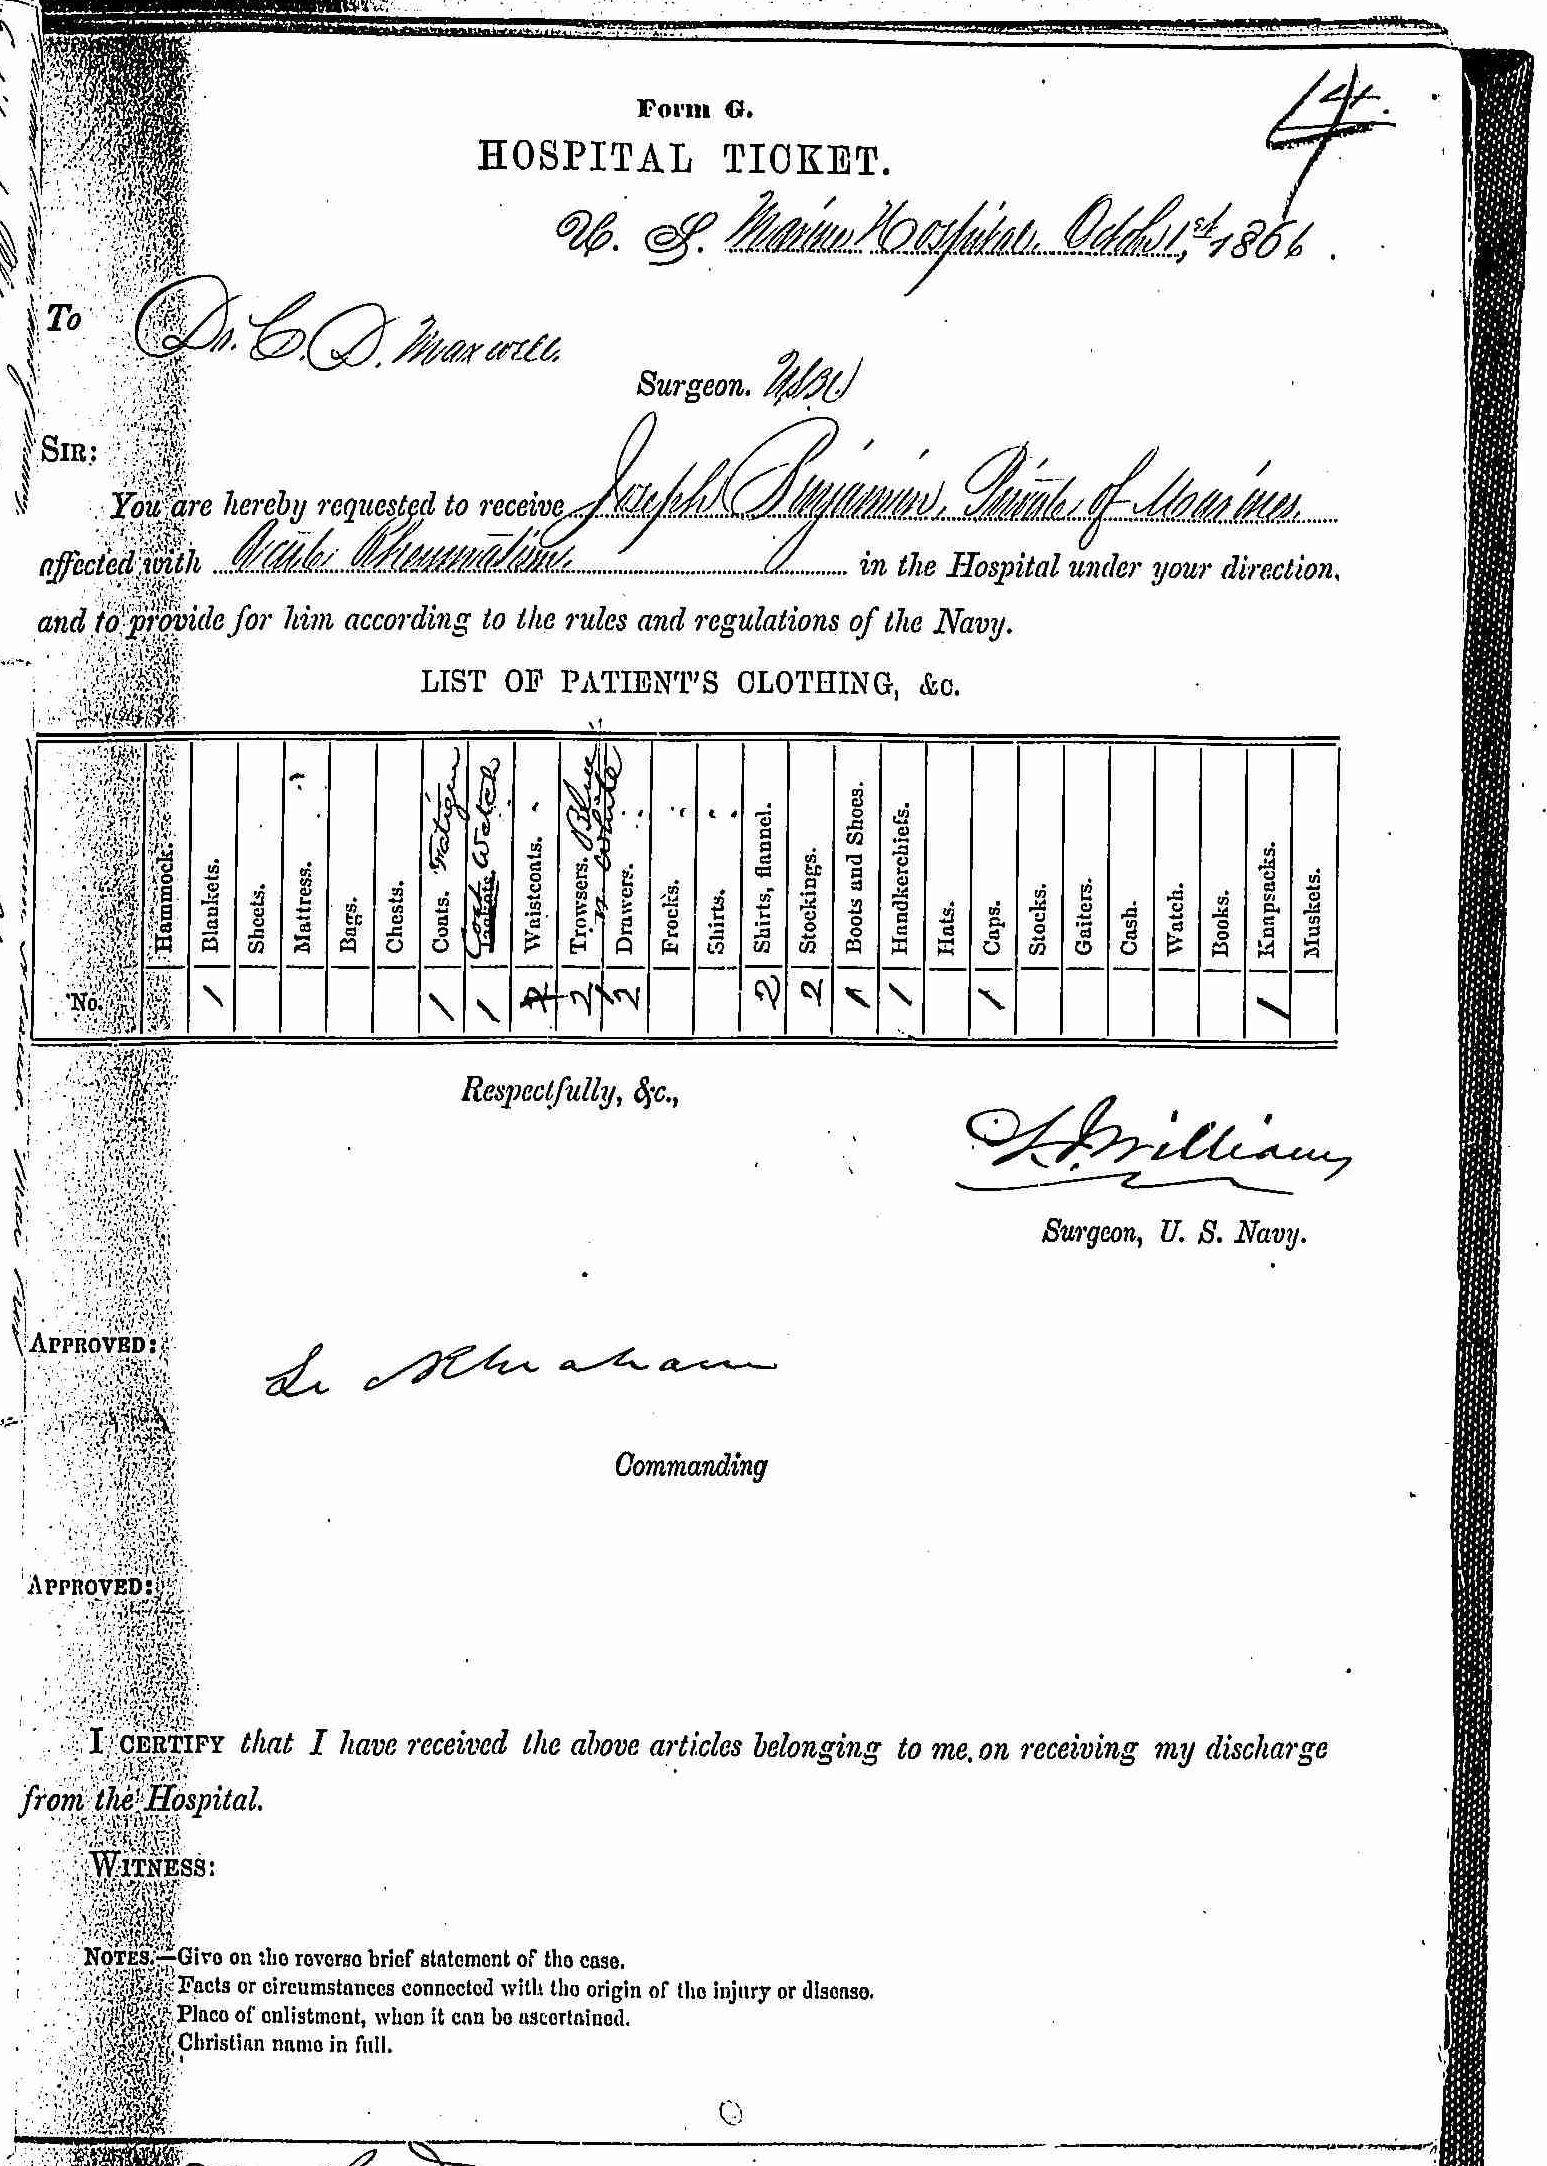 14.
Form G.
HOSPITAL TICKET.
U. S. Marine Hospital. Octob 1st, 1866.
To Dr. C. D. Maxwell.
Surgeon. USN
SIR:
You are hereby requested to receive Joseph Benjamin, Private of Marines.
affected with Acute Rheumatism. in the Hospital under your direction,
and to provide for him according to the rules and regulations of the Navy.
LIST OF PATIENT'S CLOTHING, &c.
Hammock. Blankets. Sheets. Mattress. Bags. Chests. Coats. Fatigue Coat Watch Waistcoats. Trowsers. Blue " White Drawers. Frocks. Shirts. Shirts, flannel. Stockings. Boots and Shoes. Handkerchiefs. Hats. Caps. Stocks. Gaiters. Cash. Watch. Books. Knapsacks. Muskets.
No. 1 1 1 2 2 1 2 2 2 1 1 1 1
Respectfully, &c.,
Williams
Surgeon, U. S. Navy.
APPROVED:
Commanding
APPROVED:
I CERTIFY that I have received the above articles belonging to me, on receiving my discharge
from the Hospital.
WITNESS:
NOTES.—Give on the reverse brief statement of the case.
Facts or circumstances connected with the origin of the injury or disease.
Place of enlistment, when it can be ascertained.
Christian name in full.